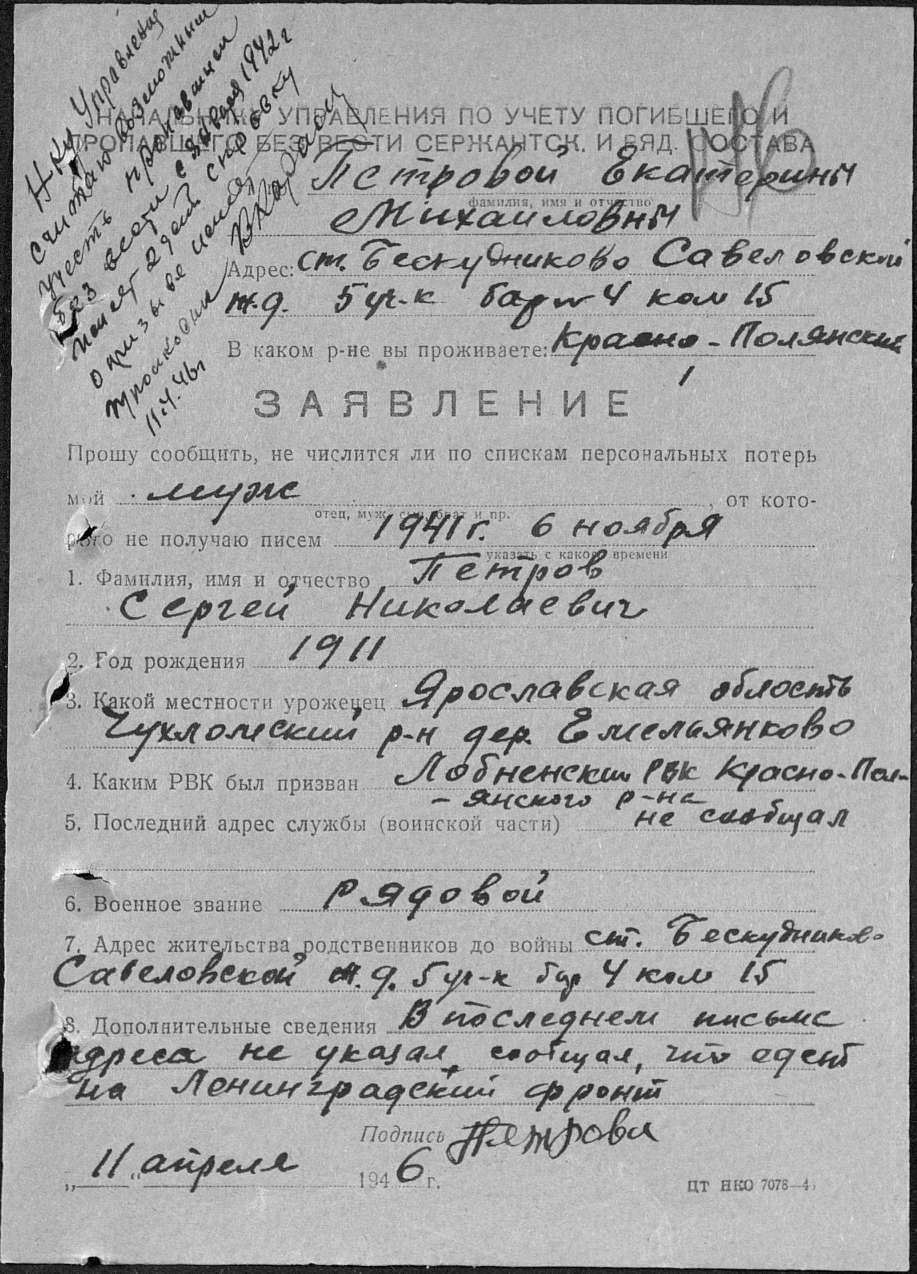 Нач Управления
считаю возможным
учесть пропавшим
без вести с января 1942 г
о призыве
11.4.46г
НАЧАЛЬНИКУ УПРАВЛЕНИЯ ПО УЧЕТУ ПОГИБШЕГО И
ПРОПАВШЕГО БЕЗ ВЕСТИ СЕРЖАНТСК. И РЯД. СОСТАВА
Петровой Екатерины
фамилия, имя и отчество
Михаиловны
Адрес: ст. Бескудниково Савеловской
ж.д. 5 уч-к бар 4 ком 15
В каком р-не вы проживаете: Красно-Полянский
ЗАЯВЛЕНИЕ
Прошу сообщить, не числится ли по спискам персональных потерь
мой муж, от кото-
отец, муж, сын, брат и пр.
рого не получаю писем 1941 г. 6 ноября
указать с какого времени
1. Фамилия, имя и отчество Петров
Сергей Николаевич
2. Год рождения 1911
3. Какой местности уроженец Ярославская область
Чухломский р-н дер. Емельянково
4. Каким РВК был призван Лобненский РВК Красно-Пол-
-янского р-на
5. Последний адрес службы (воинской части) не сообщал
6. Военное звание рядовой
7. Адрес жительства родственников до войны ст. Бескудниково
Савеловской ж.д. 5 уч-к бар 4 ком 15
8. Дополнительные сведения В последнем письме
адреса не указал, сообщал, что едет
на Ленинградский фронт
Подпись Петрова
„11" апреля 1946 г.
ЦТ НКО 7078—4